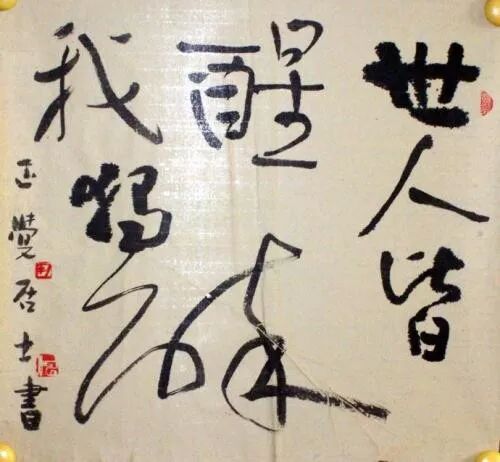 世人皆
醒
我獨醉
正覺居士書